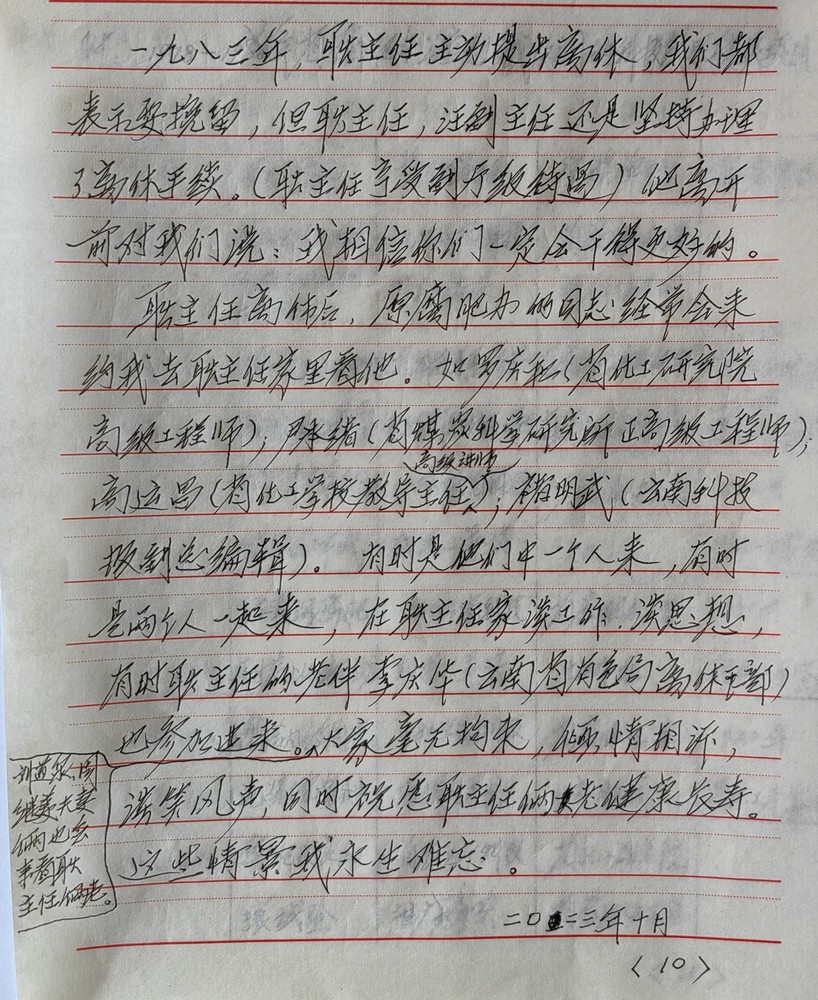 一九八三年，耿主任主动提出离休，我们都
表示要挽留，但耿主任，汪副主任还是坚持办理
了离休手续。（耿主任享受副厅级待遇）他离开
前对我们说：我相信你们一定会干得更好的。
耿主任离休后，原腐肥办的同志经常会来
约我去耿主任家里看他。如罗庆和（省化工研究院
高级工程师），严本绪（省煤炭科学研究所正高级工程师），
高级讲师
高运昌（省化工学校教导主任）；褚明武（云南科技
报副总编辑）。有时是他们中一个人来，有时
是两个人一起来，在耿主任家谈工作，谈思想，
有时耿主任的老伴李庆华（云南省有色局离休干部）
也参加进来。大家毫无拘束，倾情相诉，
谈笑风声，同时祝愿耿主任俩老健康长寿。
这些情景我永生难忘。
继美夫妻
俩也会
来看耿
主任俩老。
二〇二三年十月
〈10〉